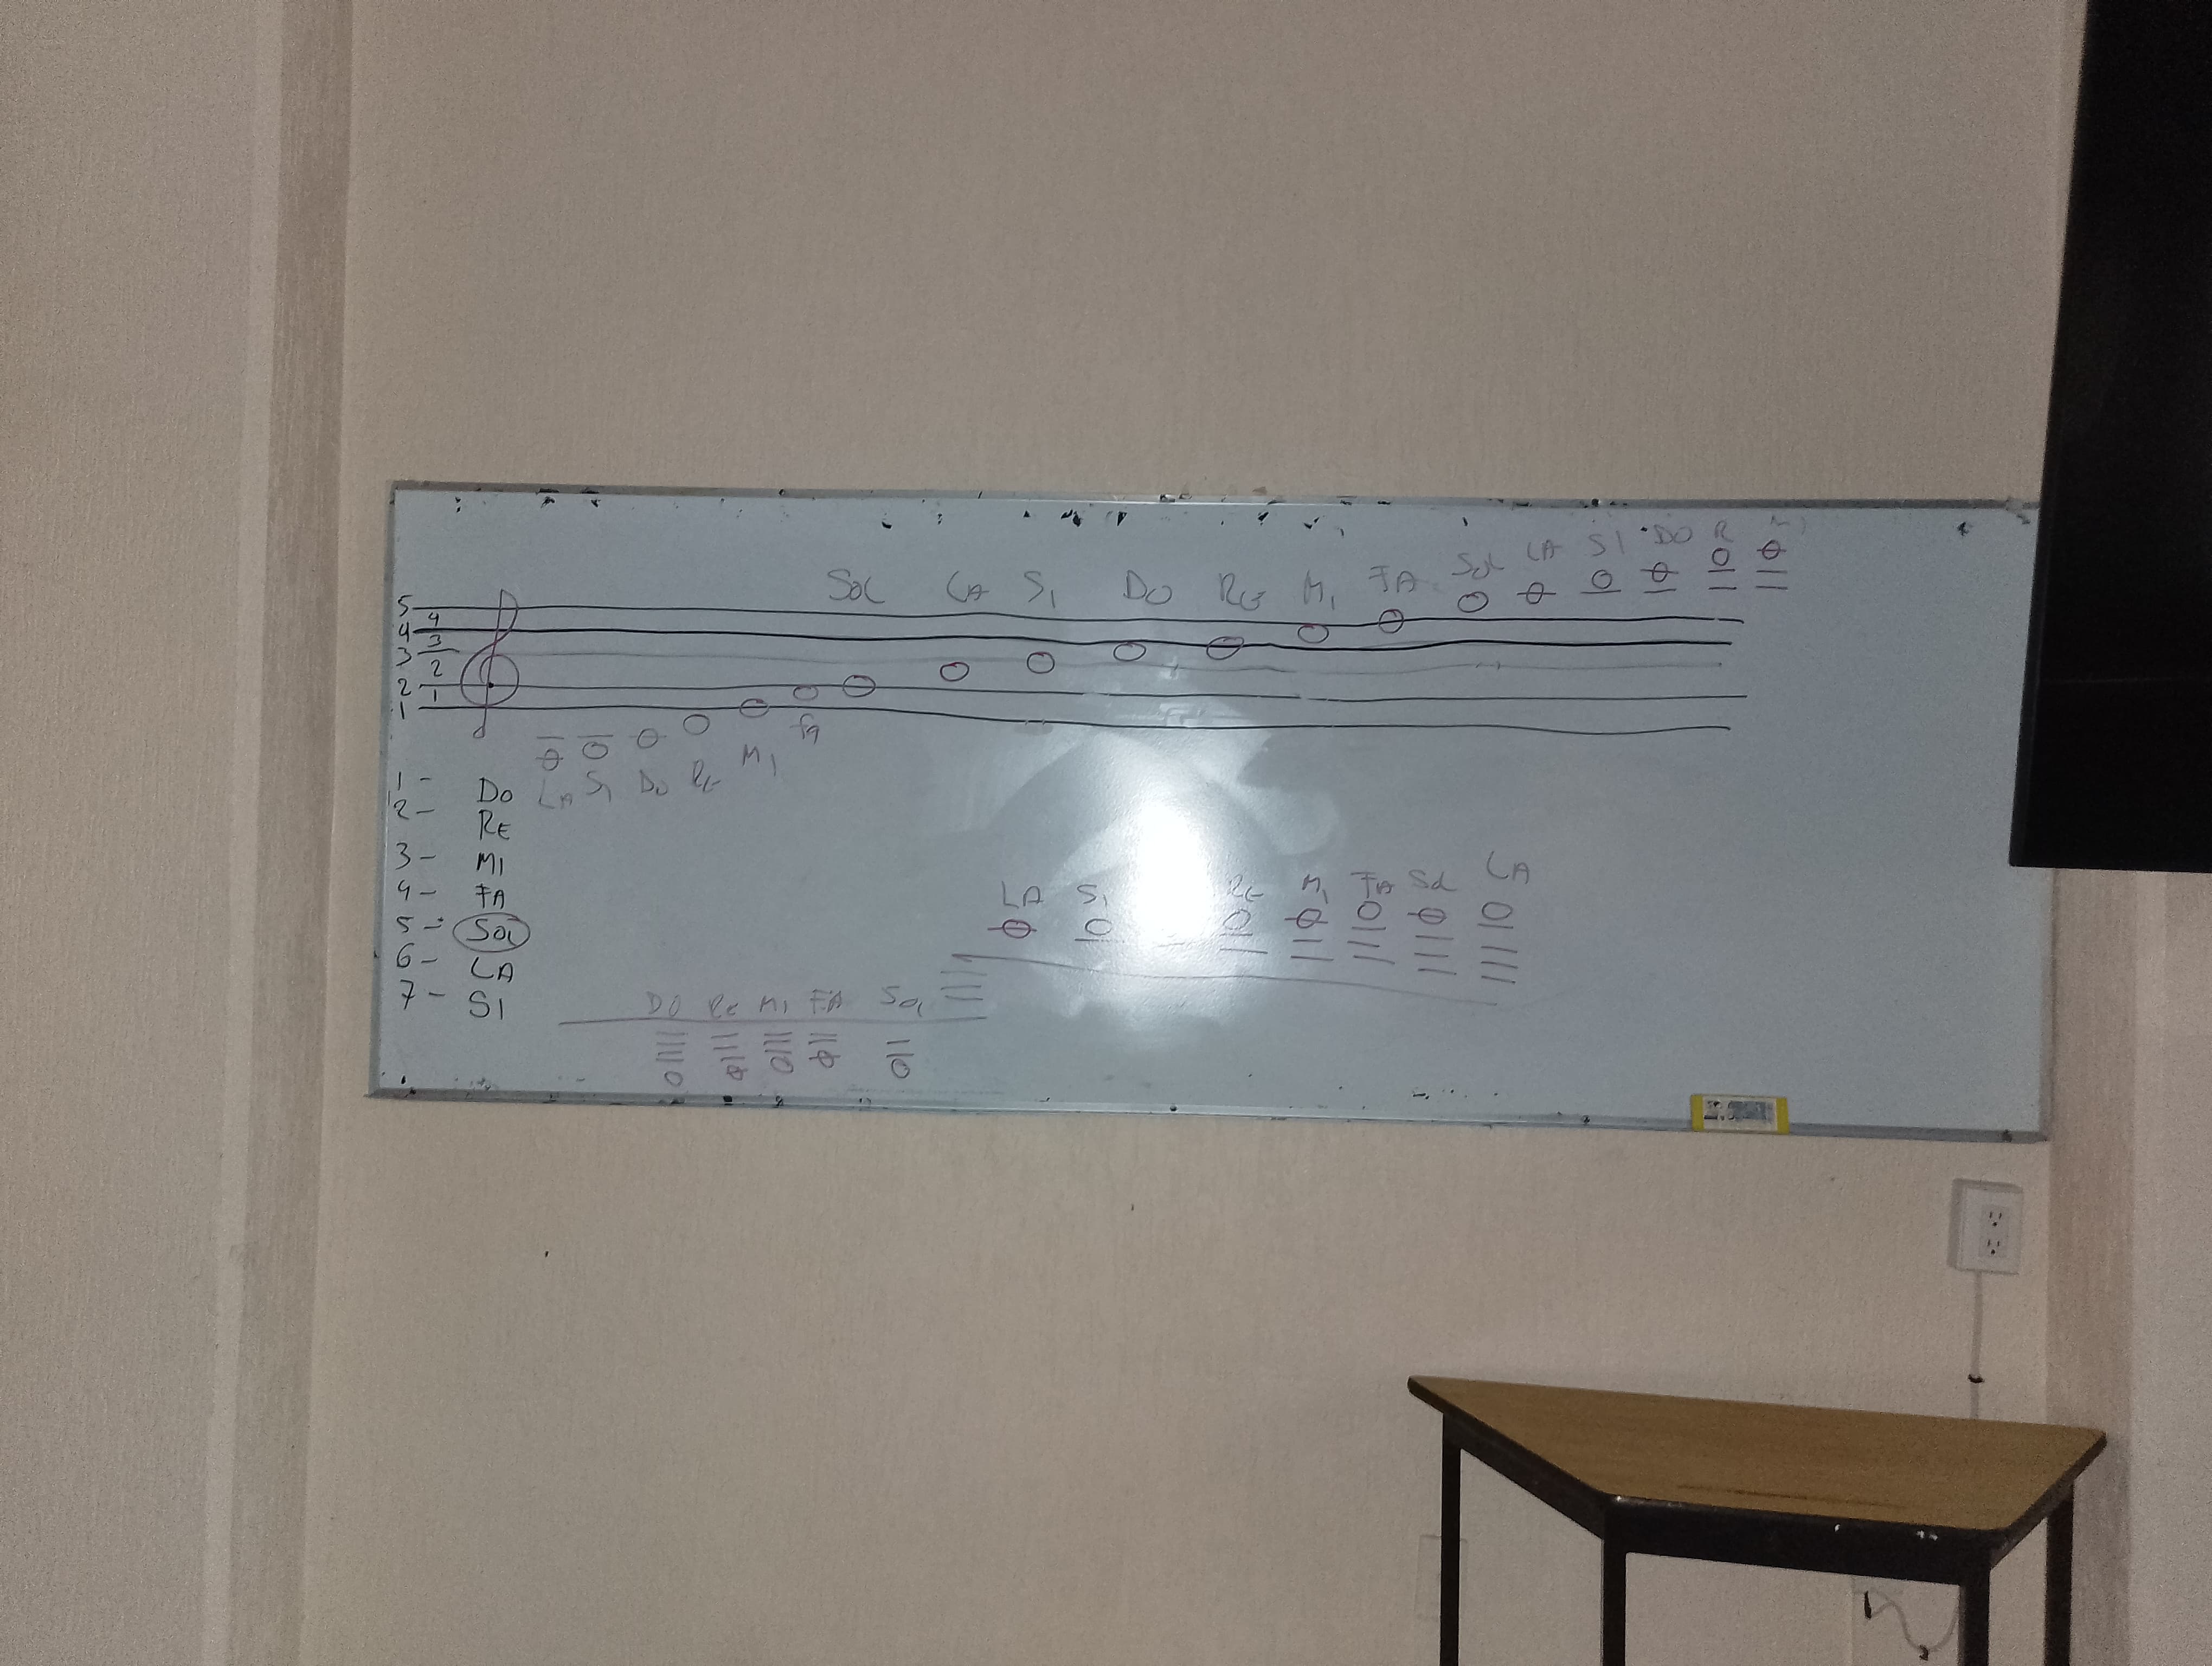 SOL LA SI DO RE MI FA SOL LA SI DO R MI
5
4
4
3
3
2
2
1
1
fa
MI
LA SI DO RE
1- DO
2- RE
3- MI
4- FA
5- SOL
6- LA
7- SI
LA SI RE MI FA SOL LA
DO RE MI FA SOL